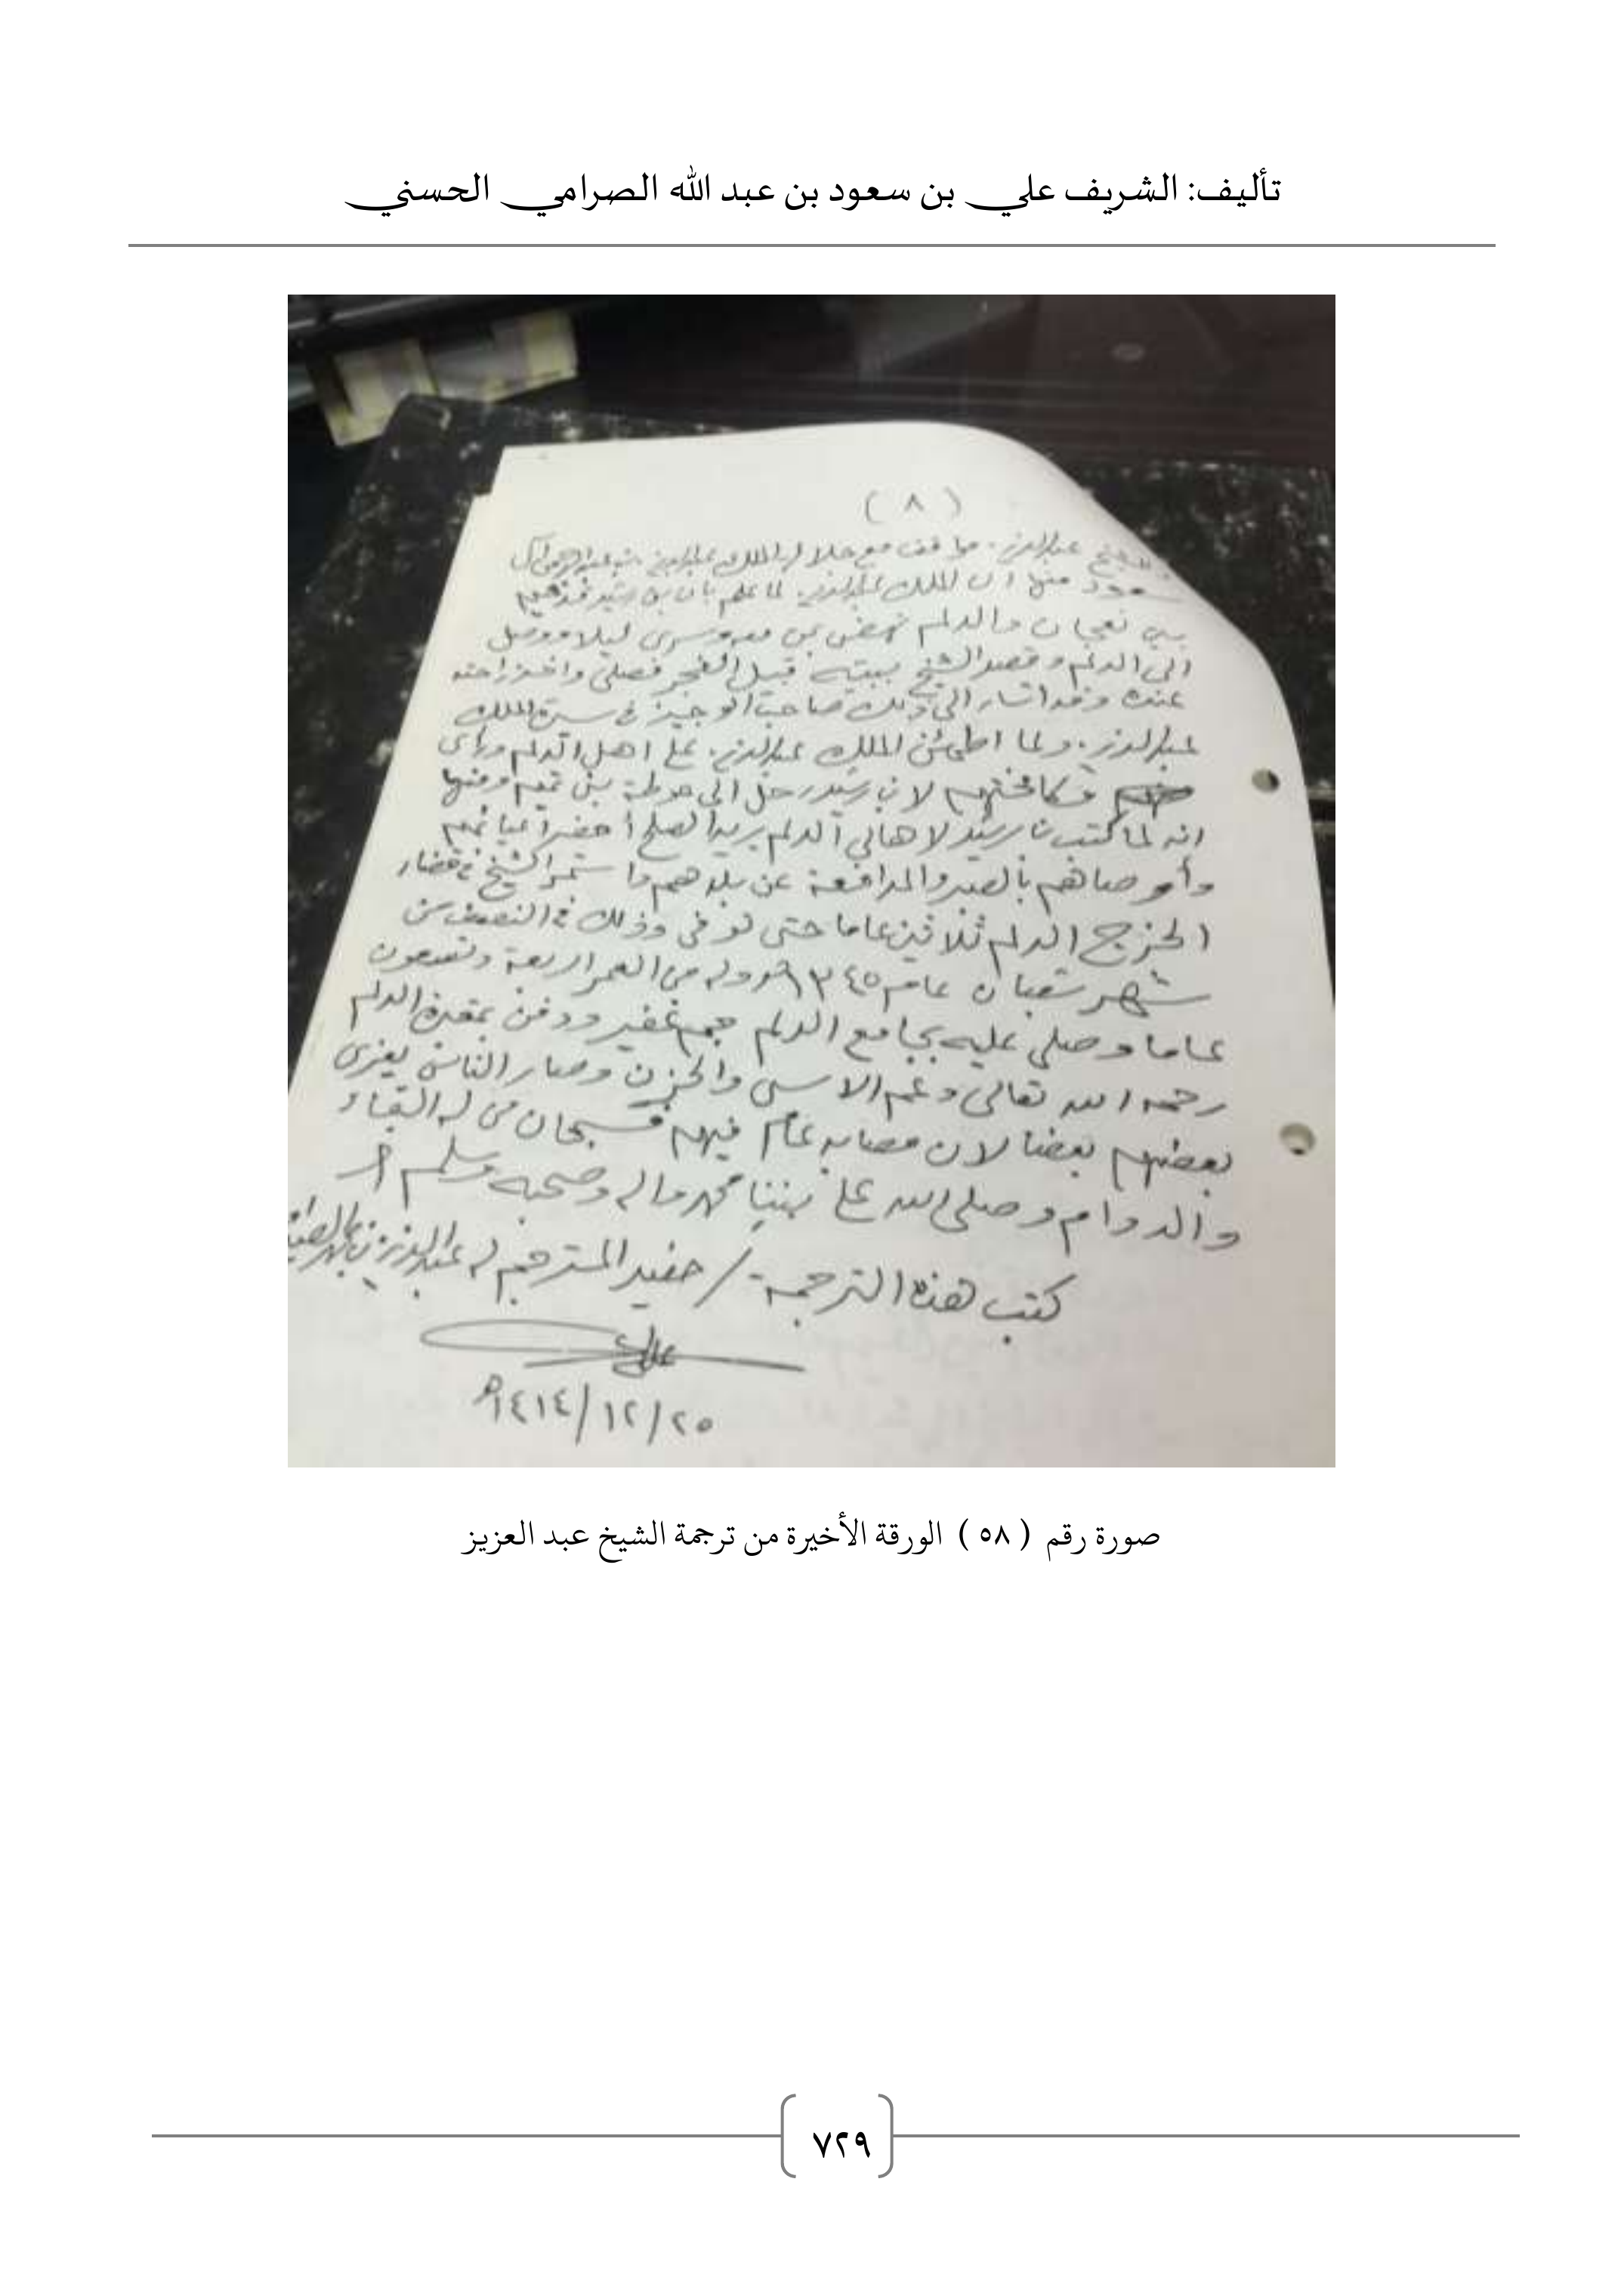 تأليف: الشريف علي بن سعود بن عبد الله الصرامي الحسني
( ٨ )
عبدالعزيز. مواقف مع جلالة الملك عبدالعزيز بن عبدالرحمن آل
سعود منها ان الملك عبدالعزيز. لما علم بان بن رشيد
بين نعجان والدلم نهض بمن معه وسرى ليلا ووصل
الى الدلم وقصد الشيخ ببيته قبل الفجر فصلى واخذ راحته
عنده وقد اشار الى ذلك صاحب الوجيز في سيرة الملك
عبدالعزيز. ولما اطمئن الملك عبدالعزيز. على اهل الدلم ورأى
مكافحتهم لابن رشيد رحل الى حوطة بني تميم ومنها
انه لما كتب بن رشيد لاهالي الدلم يريد الصلح أحضر أعيانهم
وأوصاهم بالصبر والمدافعة عن بلدهم واستمر الشيخ في قضاء
الخرج الدلم ثلاثين عاما حتى توفى وذلك في النصف من
شهر شعبان عام ١٣٤٥هـ وله من العمر اربعة وتسعون
عاما وصلى عليه بجامع الدلم جمع غفير ودفن بمقبرة الدلم
رحمه الله تعالى وعم الاسى والحزن وصار الناس يعزى
بعضهم بعضا لان مصابه عام فيهم فسبحان من له البقاء
والدوام وصلى الله على نبينا محمد واله وصحبه وسلم
كتب هذه الترجمة / حفيد المترجم له عبدالعزيز بن
٢٥/١٢/١٤١٤هـ
صورة رقم ( ٥٨ ) الورقة الأخيرة من ترجمة الشيخ عبد العزيز
٧٢٩